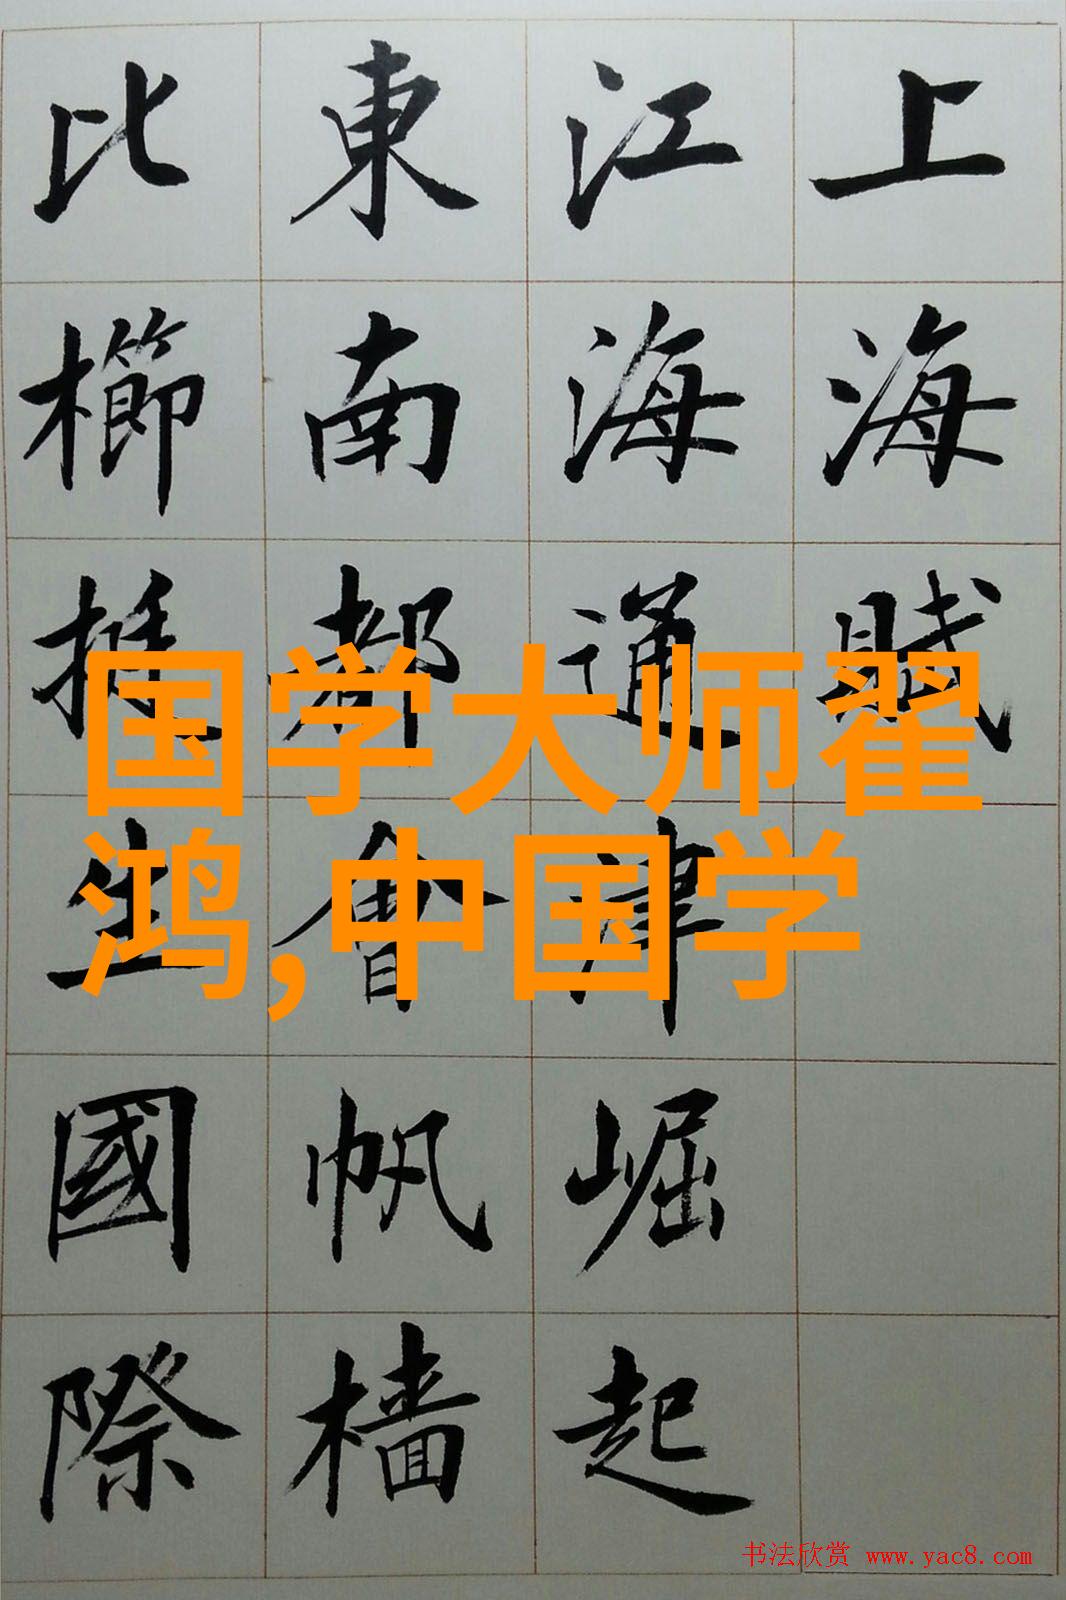 上海賦
江海通津崛起
東南都會帆檣
比櫛挺生國際
国学大师翟
鸿,中国学
书法欣赏 www.yac8.com